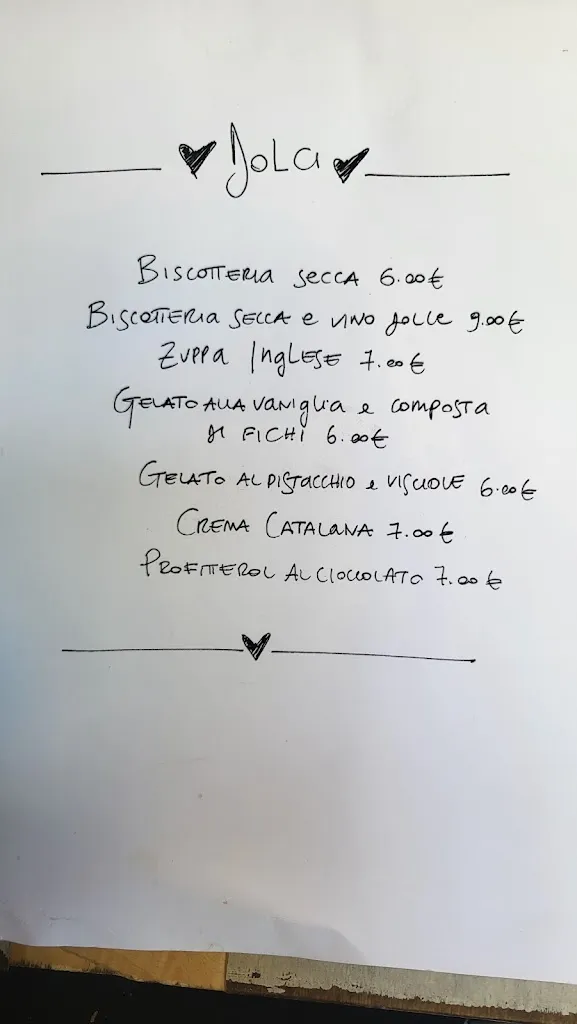 Dolci
Biscotteria secca 6.00€
Biscotteria secca e vino dolce 9.00€
Zuppa Inglese 7.00€
Gelato alla vaniglia e composta
di fichi 6.00€
Gelato al pistacchio e visciole 6.00€
Crema Catalana 7.00€
Profitterol al cioccolato 7.00€